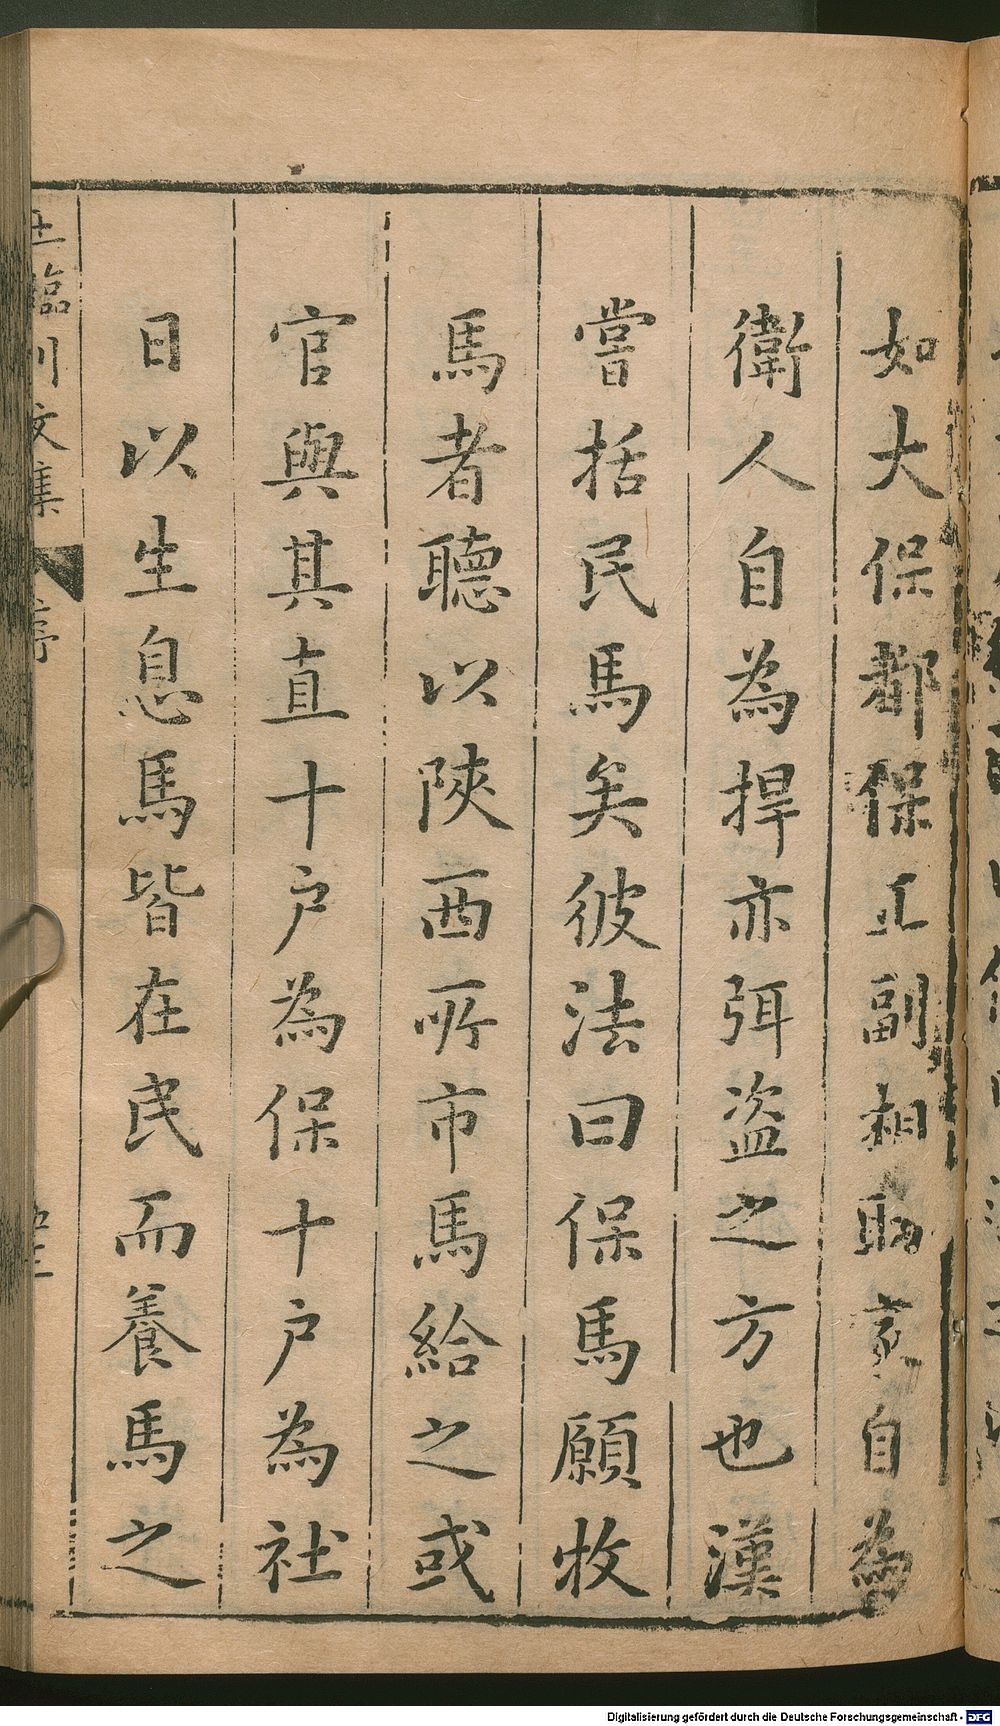 如大保都保正副相取家自為
衛人自為捍亦弭盗之方也漢
嘗括民馬矣彼法曰保馬願牧
馬者聽以陝西所市馬給之或
官與其直十戶為保十戶為社
日以生息馬皆在民而養馬之
王臨川文集 序
Digitalisierung gefördert durch die Deutsche Forschungsgemeinschaft - DFG